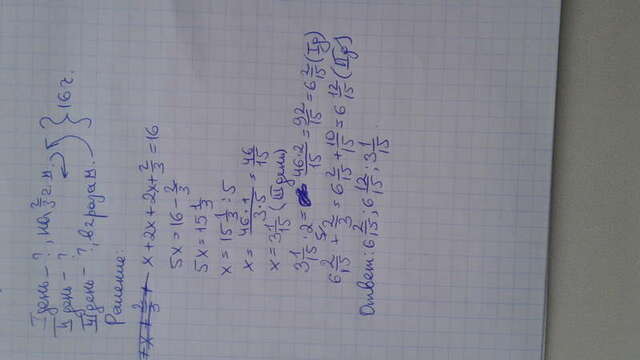 I день – ?, на 2/3 ч. м.
II день – ?
III день – ?, в 2 раза м.
} 16 ч.
Решение:
x + 2x + 2x + 2/3 = 16
5x = 16 – 2/3
5x = 15 1/3
x = 15 1/3 : 5
x = 46·1/3·5 = 46/15
x = 3 1/15 (III день)
3 1/15 · 2 = 46·2/15 = 92/15 = 6 2/15 (I д)
6 2/15 + 2/3 = 6 2/15 + 10/15 = 6 12/15 (II д)
Ответ: 6 2/15; 6 12/15; 3 1/15.